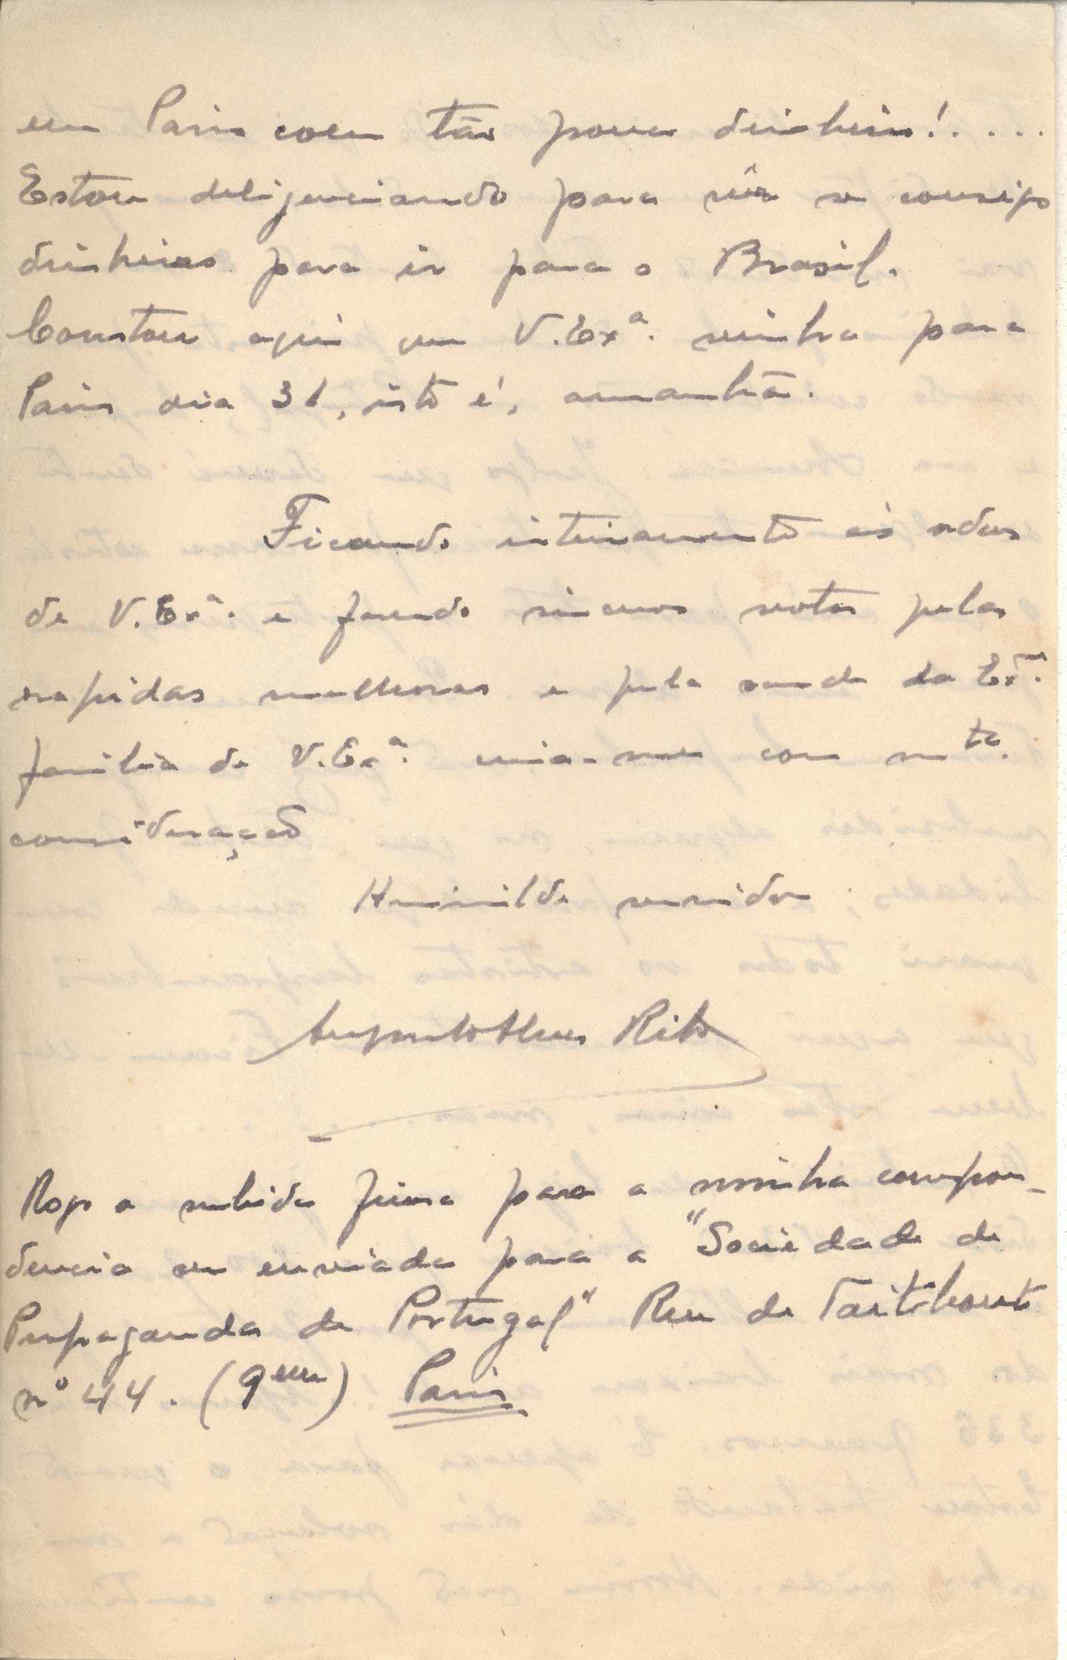 em Paris com tão pouco dinheiro!....
Estou deligenciando para vêr se consigo
dinheiro para ir para o Brasil.
Constou aqui que V.Exª. vinha para
Paris dia 31, isto é, amanhã.
Ficando inteiramente ás ordens
de V.Exª. e fazendo sinceros votos pelas
rapidas melhoras e pela saude da Exma.
familia de V.Exª. assina-me com mto.
consideração
Humilde servidor
Augusto Alves
Rogo a subida fineza para a minha correspon-
dencia ser enviada para a "Sociedade de
Propaganda de Portugal" Rue de Taitbout
nº 44. (9eme) Paris